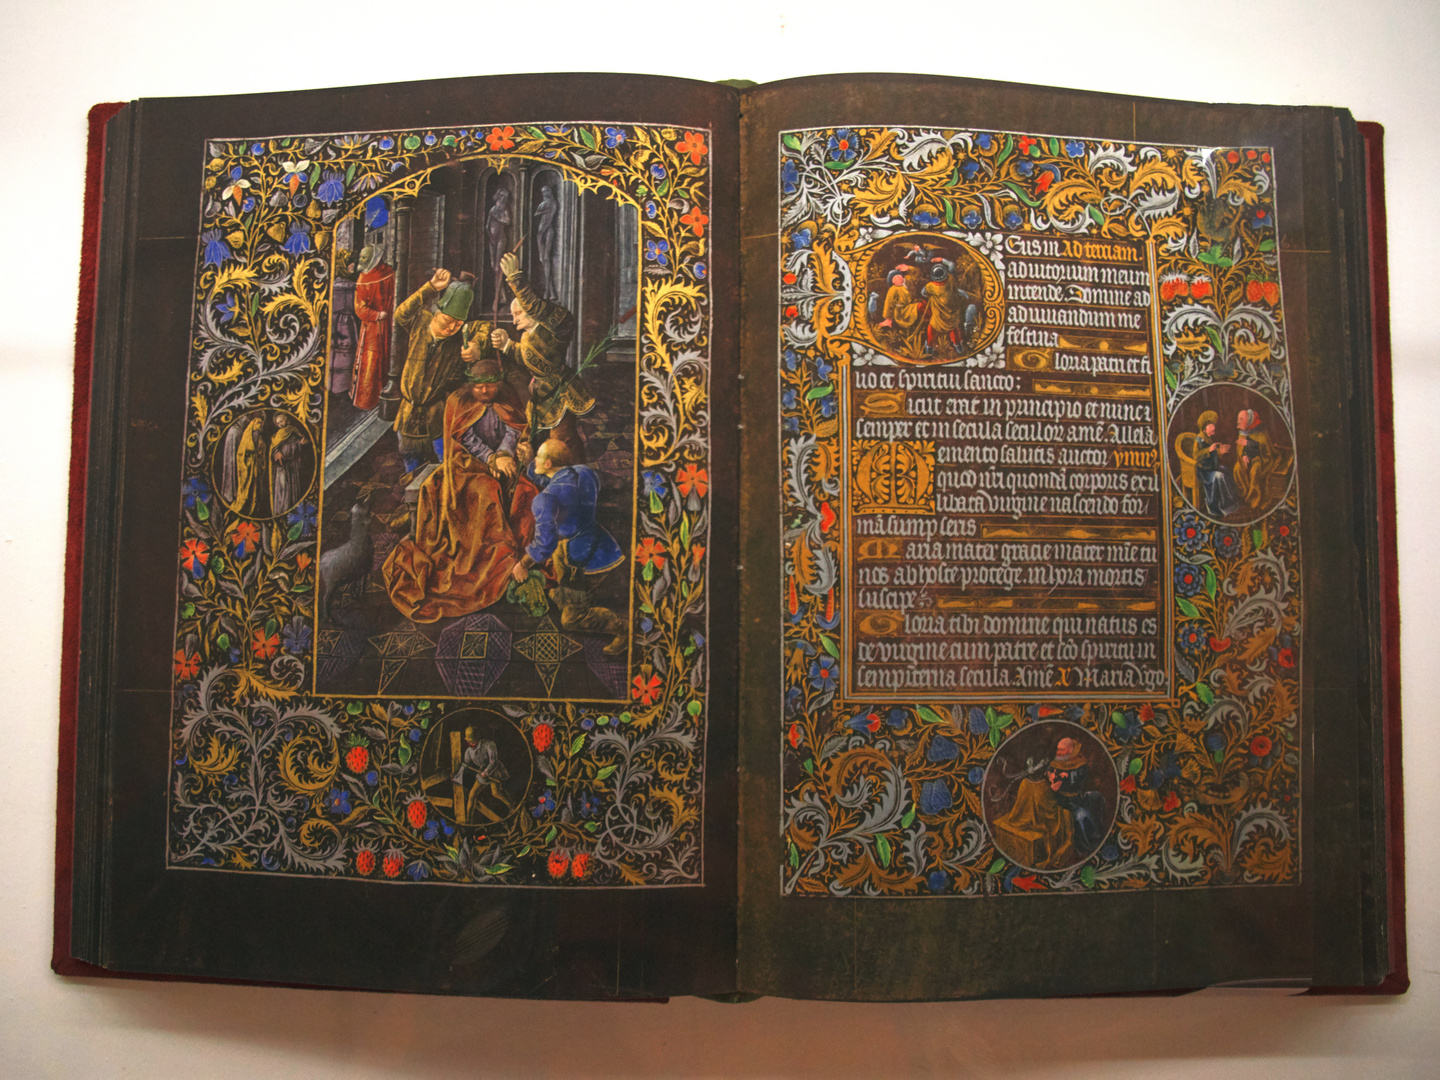 Eus in Ad terciam.
adiutorium meum
intende. Domine ad
adiuuandum me
festina
Gloria patri et fi
lio et spiritui sancto:
Sicut erat in principio et nunc ⁊
semper et in secula seculoꝝ amē. Allela
Memento salutis auctor ymnꝰ
ꝙ nr̄i quondā corporis ex il
libata virgine nascendo for
mā sumpseris
Maria mater gracie mater mīe tu
nos ab hoste protege. in hora mortis
suscipe
Gloria tibi domine qui natus es
de virgine cum patre et sc̄o spiritu in
sempiterna secula. Amē. Maria v̄go